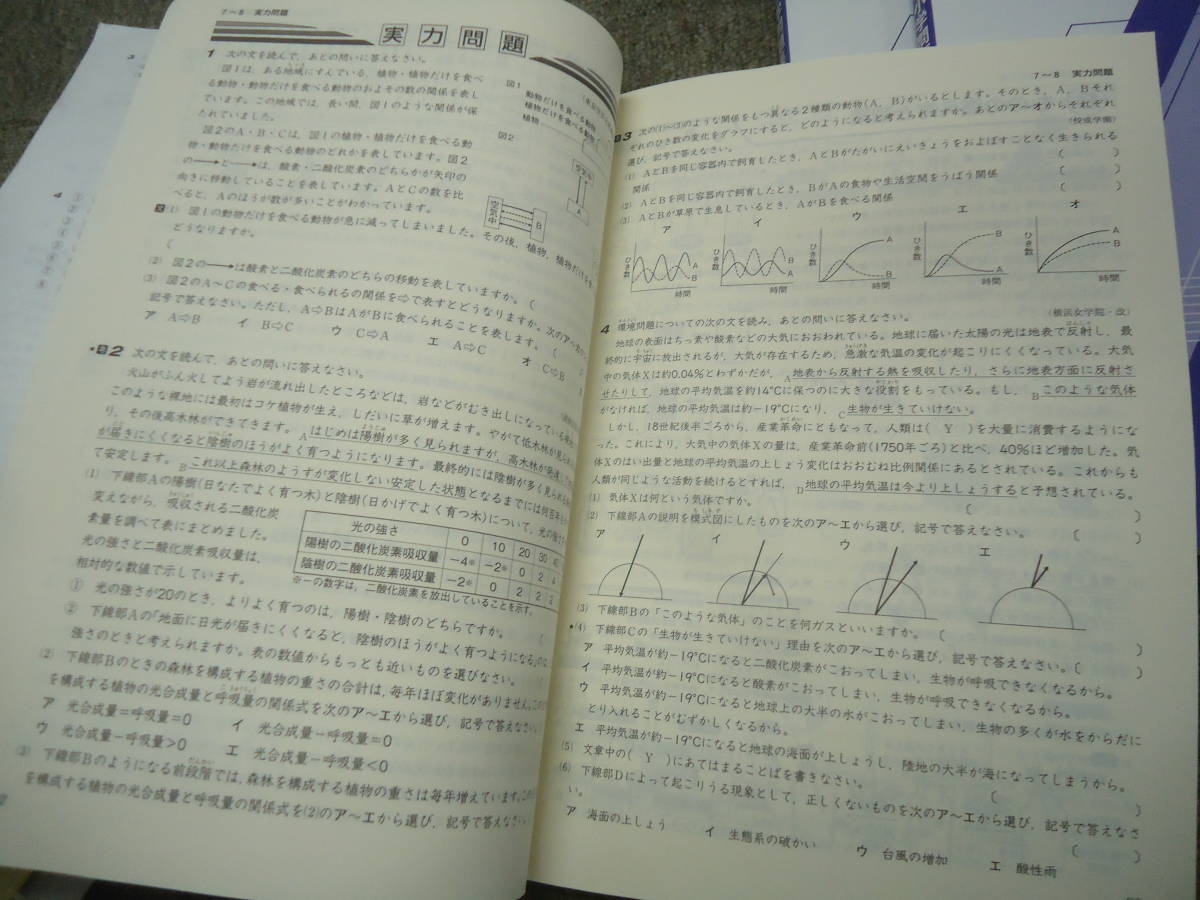 7～8 実力問題
実力問題
1 次の文を読んで，あとの問いに答えなさい。
図1は，ある地域にすんでいる，植物・植物だけを食べ
る動物・動物だけを食べる動物のおよその数の関係を表し
ています。この地域では，長い間，図1のような関係が保
たれていました。
図2のA・B・Cは，図1の植物・植物だけを食べる動
物・動物だけを食べる動物のどれかを表しています。図2
の→と→は，酸素・二酸化炭素のどちらかが矢印の
向きに移動していることを表しています。AとCの数を比
べると，Aのほうが数が多いことがわかっています。
図1
動物だけを食べる動物
植物だけを食べる動物
植物
図2
空気中
A
B
(1) 図1の動物だけを食べる動物が急に減ってしまいました。その後，植物，植物だけを
どうなりますか。
(
(2) 図2の→は酸素と二酸化炭素のどちらの移動を表していますか。(
(3) 図2のA～Cの食べる・食べられるの関係を⇨で表すとどうなりますか。次のア～オ
記号で答えなさい。ただし，A⇨BはAがBに食べられることを表します。(
ア A⇨B イ B⇨C ウ C⇨A エ A⇨C オ C⇨B
2 次の文を読んで，あとの問いに答えなさい。
火山がふん火してよう岩が流れ出したところなどは，岩などがむき出しになっている裸地
このような裸地には最初はコケ植物が生え，しだいに草が増えます。やがて低木林が見られ
り，その後高木林ができてきます。Aはじめは陽樹が多く見られますが，高木林が発達して
が届きにくくなると陰樹のほうがよく育つようになります。最終的には陰樹が多く見られる
て安定します。Bこれ以上森林のようすが変化しない安定した状態となるまでには何百年
(1) 下線部Aの陽樹(日なたでよく育つ木)と陰樹(日かげでよく育つ木)について，光の強さ
変えながら，吸収される二酸化炭
素量を調べて表にまとめました。
光の強さと二酸化炭素吸収量は，
相対的な数値で示しています。
光の強さ 0 10 20 30 40
陽樹の二酸化炭素吸収量 －4※ －2※ 0 2 4
陰樹の二酸化炭素吸収量 －2※ 0 2 2 2
※－の数字は，二酸化炭素を放出していることを示す。
① 光の強さが20のとき，よりよく育つのは，陽樹・陰樹のどちらですか。(
② 下線部Aの「地面に日光が届きにくくなると，陰樹のほうがよく育つようになる」のは
強さのときと考えられますか。表の数値からもっとも近いものを選びなさい。(
(2) 下線部Bのときの森林を構成する植物の重さの合計は，毎年ほぼ変化がありません。この
を構成する植物の光合成量と呼吸量の関係式を次のア～エから選び，記号で答えなさい
ア 光合成量＝呼吸量＝0 イ 光合成量－呼吸量＝0
ウ 光合成量－呼吸量＞0 エ 光合成量－呼吸量＜0
(3) 下線部Bのようになる前段階では，森林を構成する植物の重さは毎年増えています。この
を構成する植物の光合成量と呼吸量の関係式を(2)のア～エから選び，記号で答えなさい
7～8 実力問題
3 次の(1)～(3)のような関係をもつ異なる2種類の動物(A，B)がいるとします。そのとき，A，Bそれ
ぞれのひき数の変化をグラフにすると，どのようになると考えられますか。あとのア～オからそれぞれ
選び，記号で答えなさい。
(1) AとBを同じ容器内で飼育したとき，AとBがたがいにえいきょうをおよぼすことなく生きられる
関係 ( )
(2) AとBを同じ容器内で飼育したとき，BがAの食物や生活空間をうばう関係 ( )
(3) AとBが草原で生息しているとき，AがBを食べる関係 ( )
ア イ ウ エ オ
ひき数 A B 時間
ひき数 B A 時間
ひき数 A B 時間
ひき数 B A 時間
ひき数 A B 時間
4 環境問題についての次の文を読み，あとの問いに答えなさい。 (横浜女学院・改)
地球の表面はちっ素や酸素などの大気におおわれている。地球に届いた太陽の光は地表で反射し，最
終的に宇宙に放出されるが，大気が存在するため，急激な気温の変化が起こりにくくなっている。大気
中の気体Xは約0.04％とわずかだが，A地表から反射する熱を吸収したり，さらに地表方面に反射さ
せたりして，地球の平均気温を約14℃に保つのに大きな役割をもっている。もし，Bこのような気体
がなければ，地球の平均気温は約－19℃になり，C生物が生きていけない。
しかし，18世紀後半ごろから，産業革命にともなって，人類は( Y )を大量に消費するようにな
った。これにより，大気中の気体Xの量は，産業革命前(1750年ごろ)と比べ，40％ほど増加した。気
体Xのはい出量と地球の平均気温の上しょう変化はおおむね比例関係にあるとされている。これからも
人類が同じような活動を続けるとすれば，D地球の平均気温は今より上しょうすると予想されている。
(1) 気体Xは何という気体ですか。 ( )
(2) 下線部Aの説明を模式図にしたものを次のア～エから選び，記号で答えなさい。 ( )
ア イ ウ エ
(3) 下線部Bの「このような気体」のことを何ガスといいますか。 ( )
★(4) 下線部Cの「生物が生きていけない」理由を次のア～エから選び，記号で答えなさい。( )
ア 平均気温が約－19℃になると二酸化炭素がこおってしまい，生物が呼吸できなくなるから。
イ 平均気温が約－19℃になると酸素がこおってしまい，生物が呼吸できなくなるから。
ウ 平均気温が約－19℃になると地球上の大半の水がこおってしまい，生物の多くが水をからだに
とり入れることがむずかしくなるから。
エ 平均気温が約－19℃になると地球の海面が上しょうし，陸地の大半が海になってしまうから。
(5) 文章中の( Y )にあてはまることばを書きなさい。 ( )
(6) 下線部Dによって起こりうる現象として，正しくないものを次のア～エから選び，記号で答えなさ
い。 ( )
ア 海面の上しょう イ 生態系の破かい ウ 台風の増加 エ 酸性雨